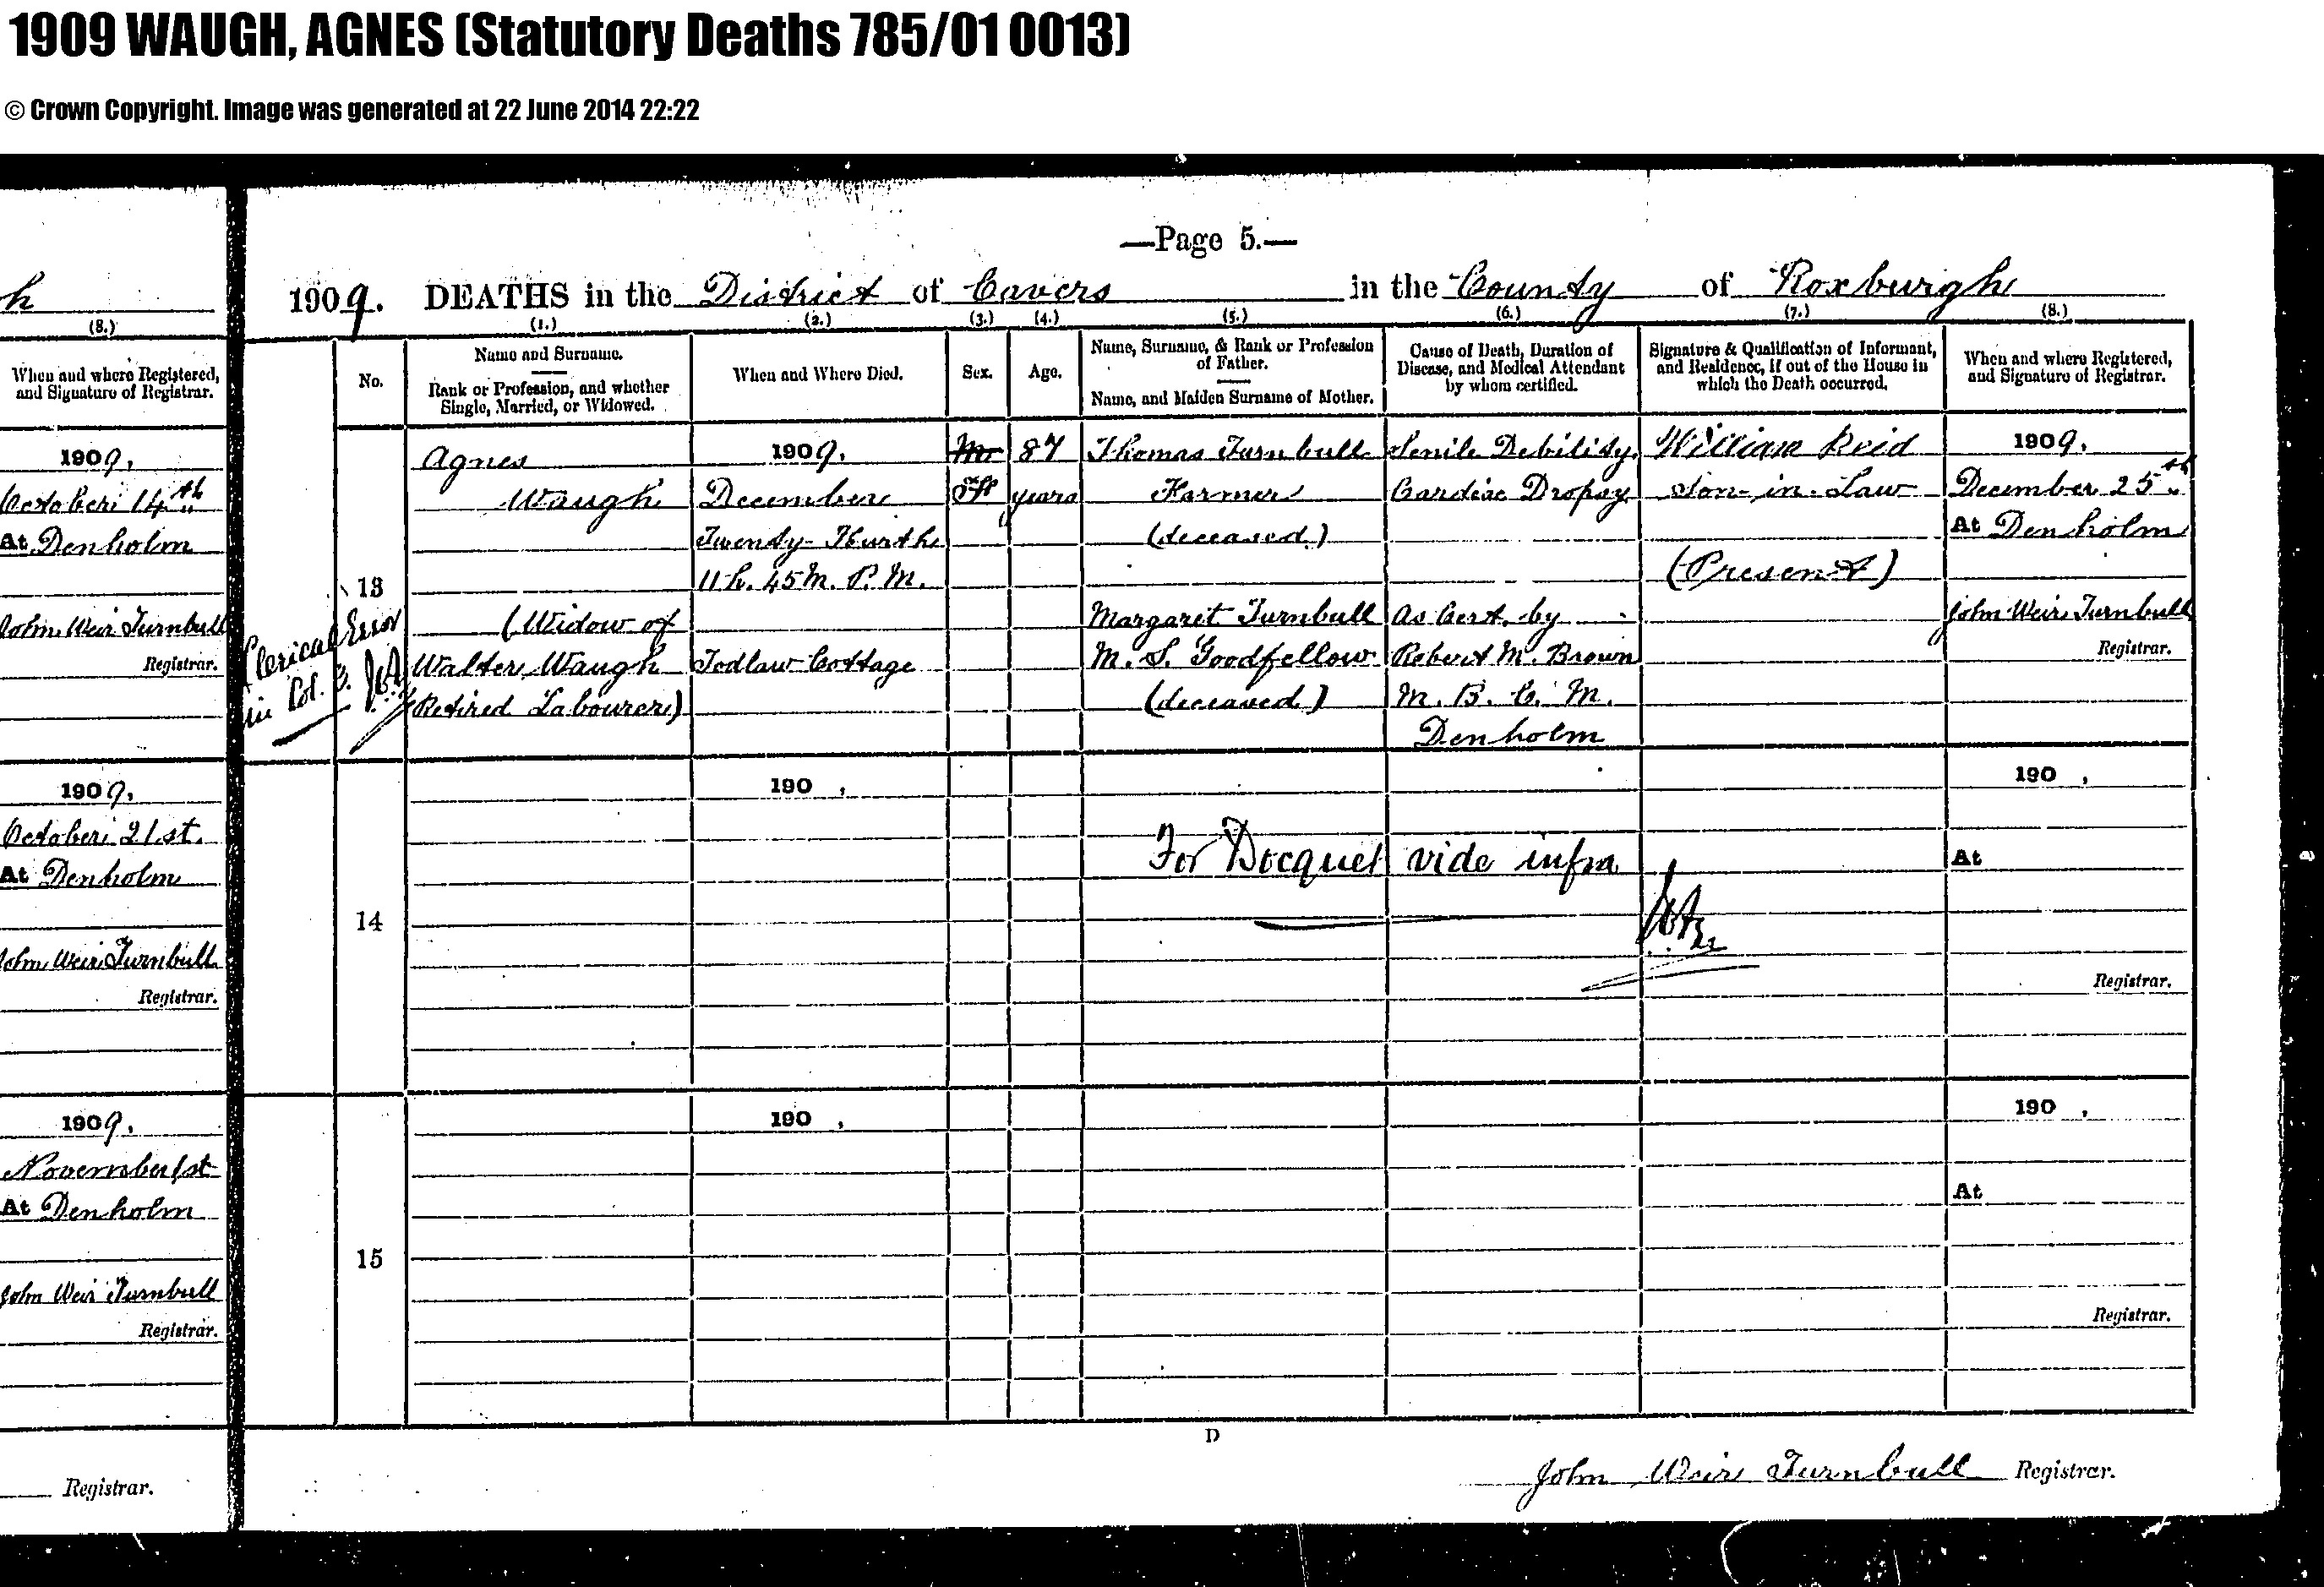 1909 WAUGH, AGNES (Statutory Deaths 785/01 0013)
© Crown Copyright. Image was generated at 22 June 2014 22:22
—Page 5.—
1909. DEATHS in the District of Cavers in the County of Roxburgh
h
(8.)
When and where Registered,
and Signature of Registrar.
1909,
October 14th
At Denholm
John Weir Turnbull
Registrar.
1909,
October 21st.
At Denholm
John Weir Turnbull
Registrar.
1909,
November 1st
At Denholm
John Weir Turnbull
Registrar.
Registrar.
No.
13
Clerical Error
in Col. 3.
14
15
(1.)
Name and Surname.
Rank or Profession, and whether
Single, Married, or Widowed.
Agnes
Waugh
(Widow of
Walter Waugh
Retired Labourer)
(2.)
When and Where Died.
1909.
December
Twenty-Fourth
11 h. 45 M. P. M.
Todlaw Cottage
190 ,
190 ,
(3.)
Sex.
M
F
(4.)
Age.
87
years
(5.)
Name, Surname, & Rank or Profession
of Father.
Name, and Maiden Surname of Mother.
Thomas Turnbull
Farmer
(deceased)
Margaret Turnbull
M. S. Goodfellow
(deceased)
(6.)
Cause of Death, Duration of
Disease, and Medical Attendant
by whom certified.
Senile Debility,
Cardiac Dropsy
As Cert. by
Robert M. Brown
M. B. C. M.
Denholm
For Docquet vide infra
(7.)
Signature & Qualification of Informant,
and Residence, if out of the House in
which the Death occurred.
William Reid
Son-in-Law
(Present)
(8.)
When and where Registered,
and Signature of Registrar.
1909.
December 25th
At Denholm
John Weir Turnbull
Registrar.
190 ,
At
Registrar.
190 ,
At
Registrar.
D
John Weir Turnbull Registrar.